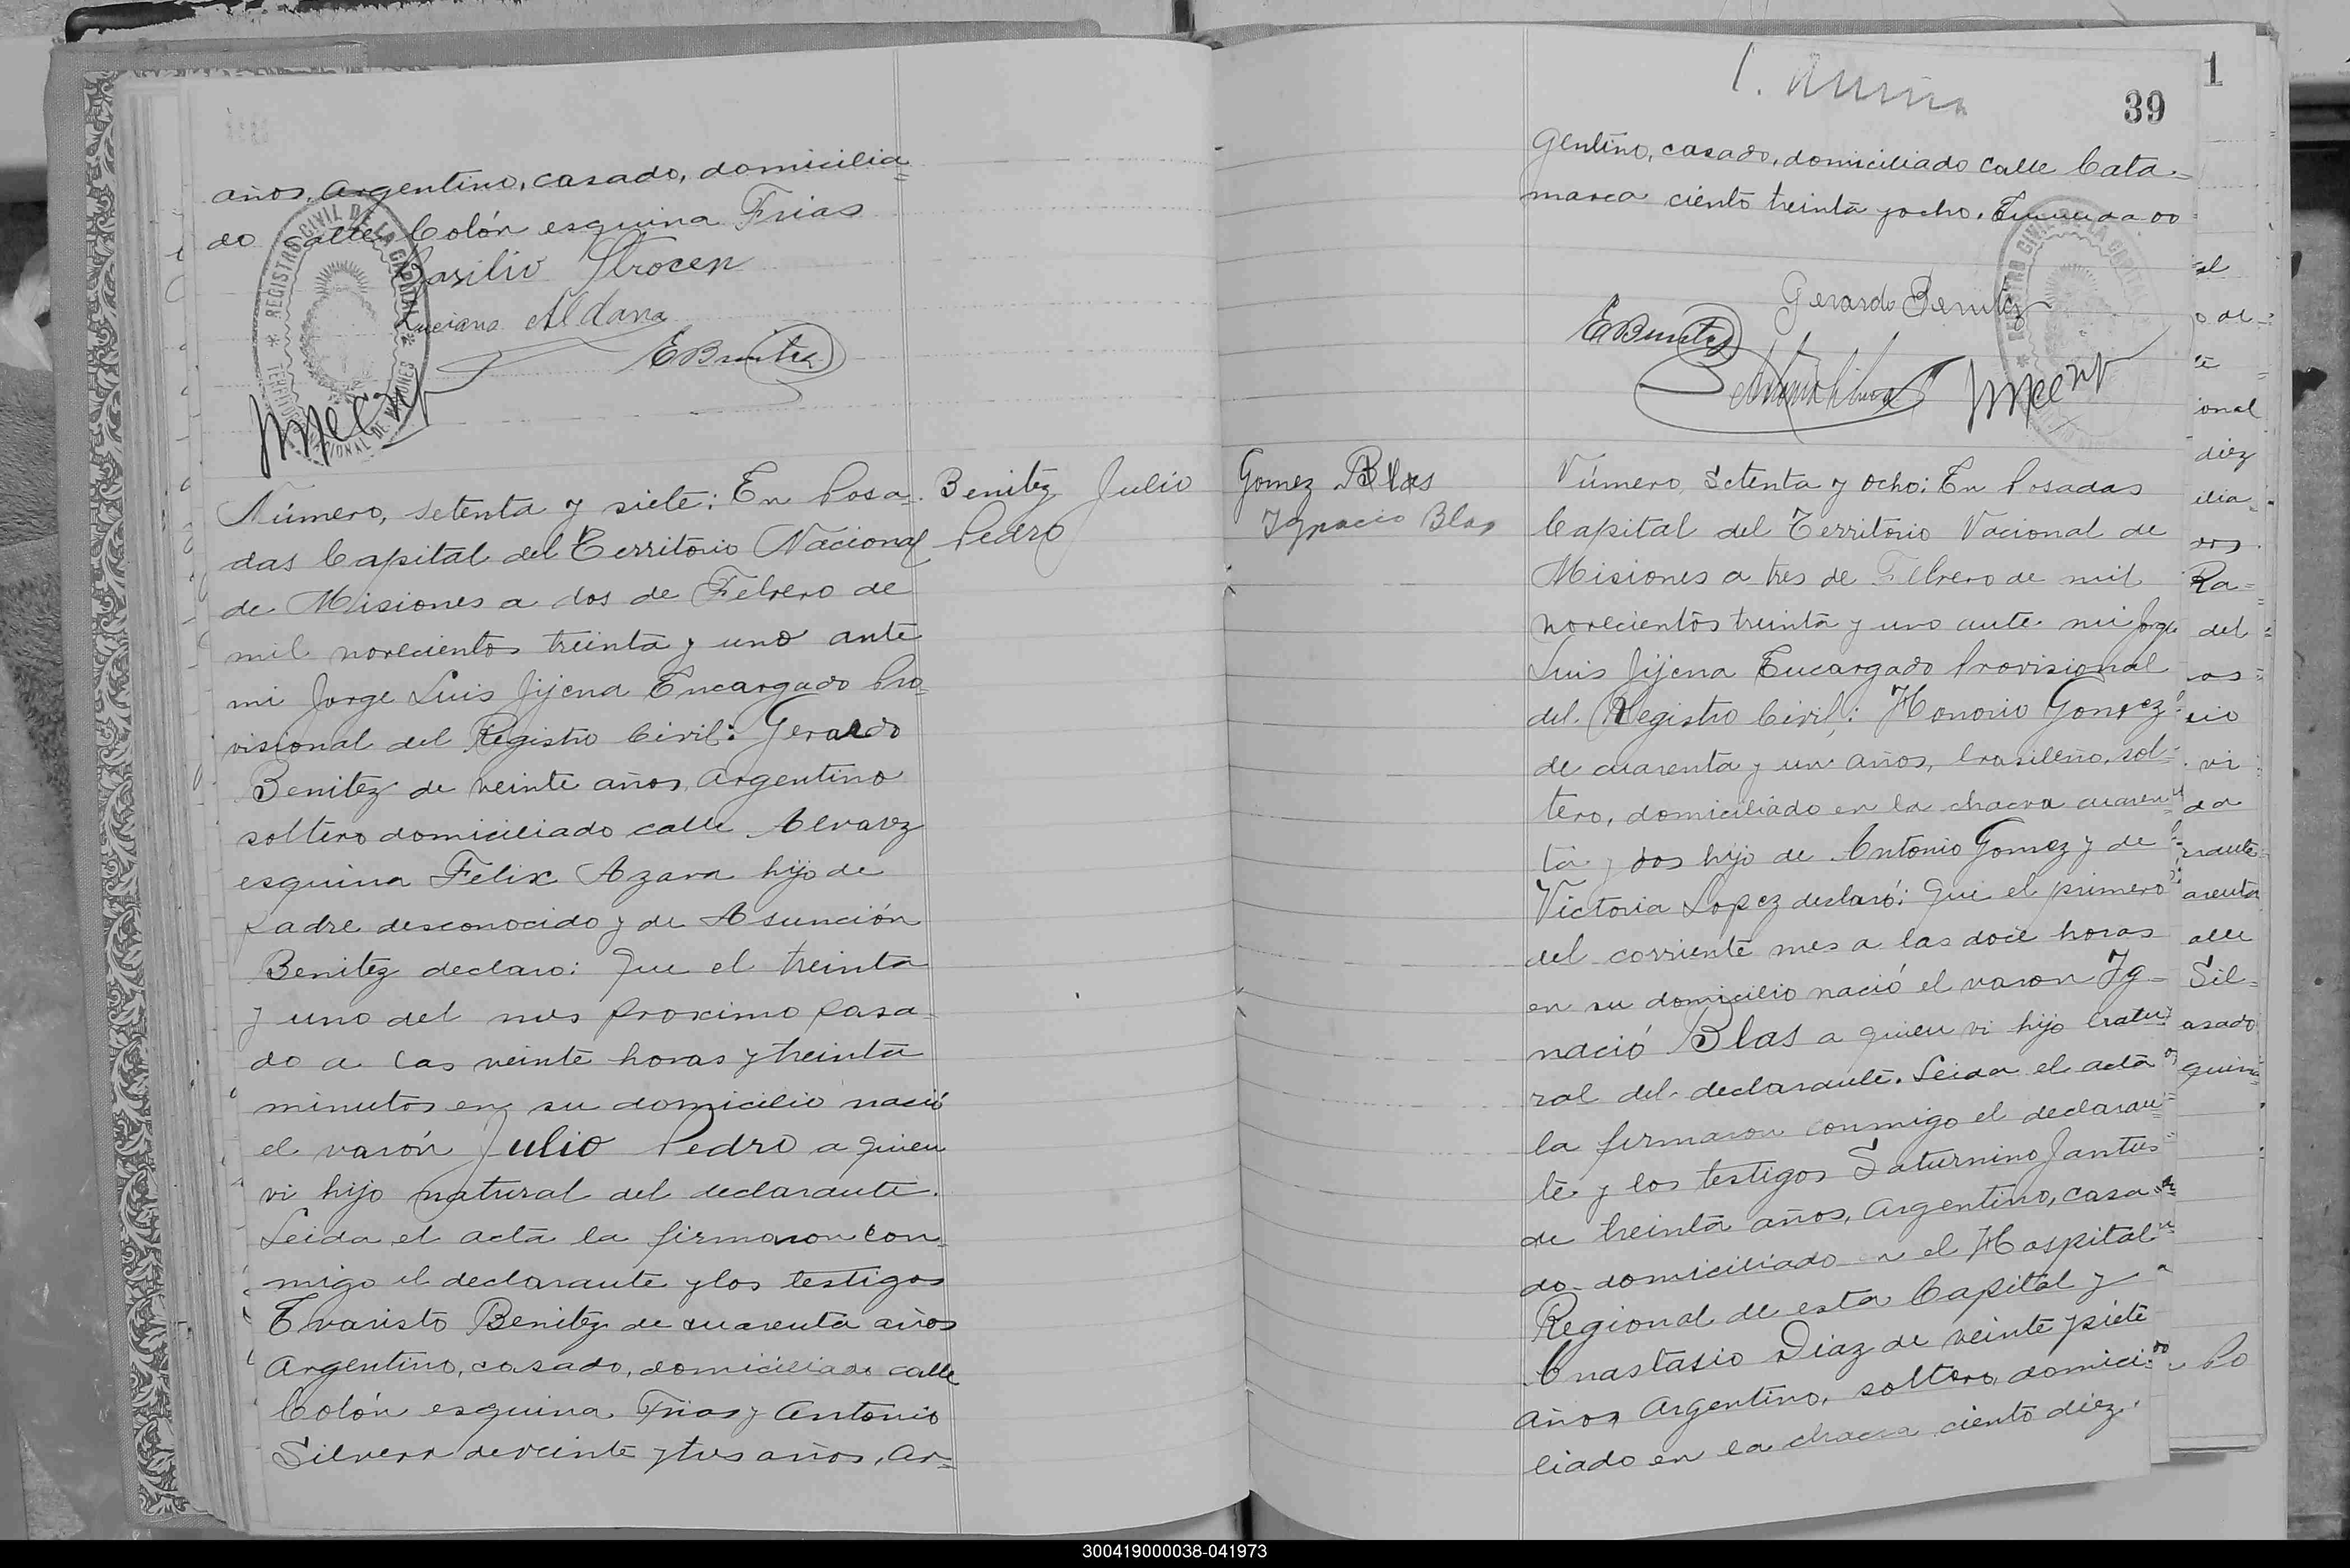 años, argentino, casado, domicilia=
do calle Colón esquina Frias
Basilio
Luciano Aldana
EBenitez
REGISTRO CIVIL DE LA CAPITAL
Número, setenta y siete: En Posa-
das Capital del Territorio Nacional
de Misiones a dos de Febrero de
mil novecientos treinta y uno ante
mi Jorge Luis Jijena Encargado Pro=
visional del Registro Civil: Gerardo
Benitez de veinte años, argentino
soltero domiciliado calle Alvarez
esquina Felix Azara hijo de
padre desconocido y de Asunción
Benitez declaro: Que el treinta
y uno del mes proximo pasa=
do a las veinte horas y treinta
minutos en su domicilio nació
el varón Julio Pedro a quien
vi hijo natural del declarante.
Leida el acta la firmaron con=
migo el declarante y los testigos
Evaristo Benitez de cuarenta años
argentino, casado, domiciliado calle
Colón esquina Frias y Antonio
Silvera de veinte y tres años, ar=
Benitez Julio
Pedro
Gomez Blas
Ignacio Blas
39
1
gentino, casado, domiciliado calle Cata=
marca ciento treinta y ocho. Enmendado
Gerardo Benitez
EBenitez
REGISTRO CIVIL DE LA CAPITAL
Número, Setenta y ocho: En Posadas
Capital del Territorio Nacional de
Misiones a tres de Febrero de mil
novecientos treinta y uno ante mi Jorge
Luis Jijena Encargado Provisional
del Registro Civil: Honorio Gomez
de cuarenta y un años, brasileño, sol=
tero, domiciliado en la chacra cuaren
ta y dos hijo de Antonio Gomez y de
Victoria Lopez declaró: Que el primero
del corriente mes a las doce horas
en su domicilio nació el varon Ig=
nació Blas a quien vi hijo natu
ral del declarante. Leida el acta
la firmaron conmigo el declaran=
te y los testigos Saturnino Jantus
de treinta años, argentino, casa
do domiciliado en el Hospital
Regional de esta Capital y
Anastasio Diaz de veinte y siete
años argentino, soltero domici=
liado en la chacra ciento diez.
onal
diez
Ra=
del
Sil=
300419000038-041973